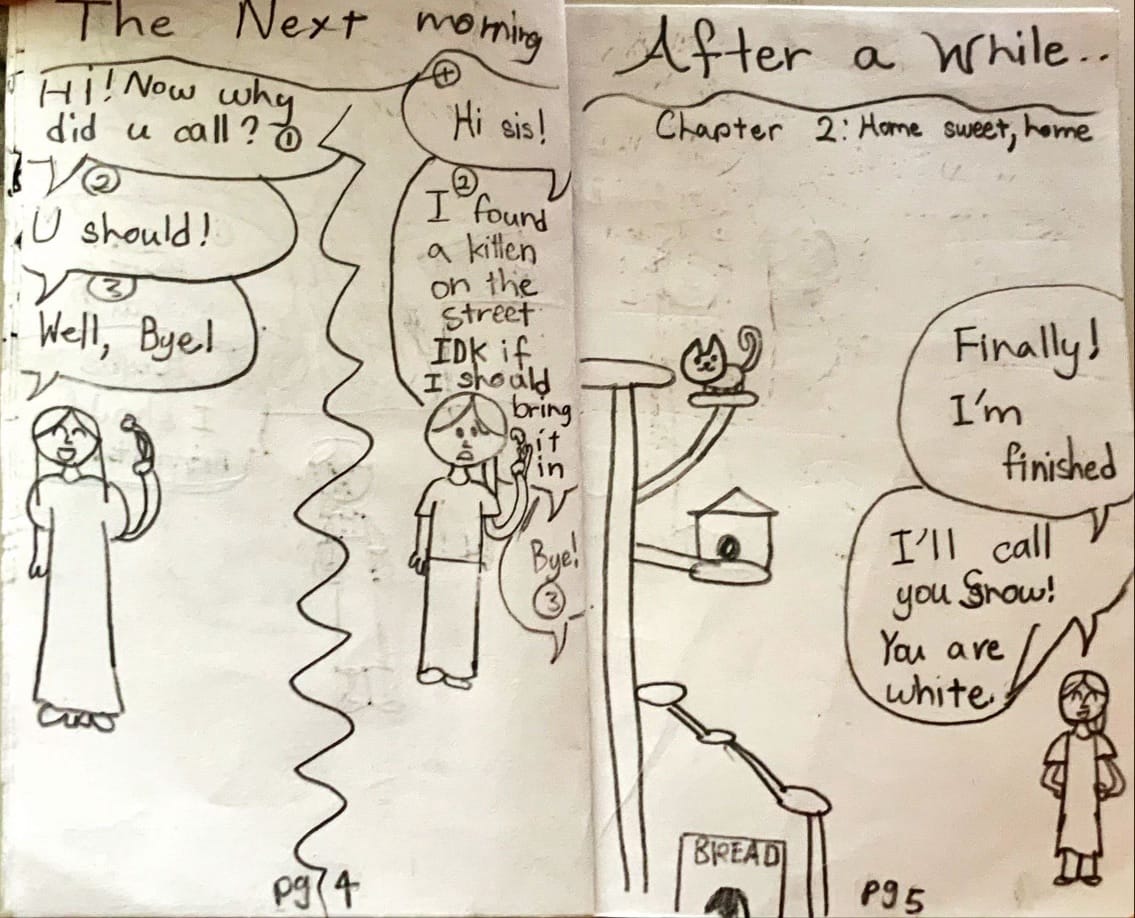 The Next morning
Hi! Now why
did u call? ①
②
U should!
③
Well, Bye!
Hi sis!
②
I found
a kitten
on the
street
IDK if
I should
bring
it
in
Bye!
③
pg 4
After a While..
Chapter 2: Home sweet, home
Finally!
I'm
finished
I'll call
you Snow!
You are
white.
BREAD
pg 5